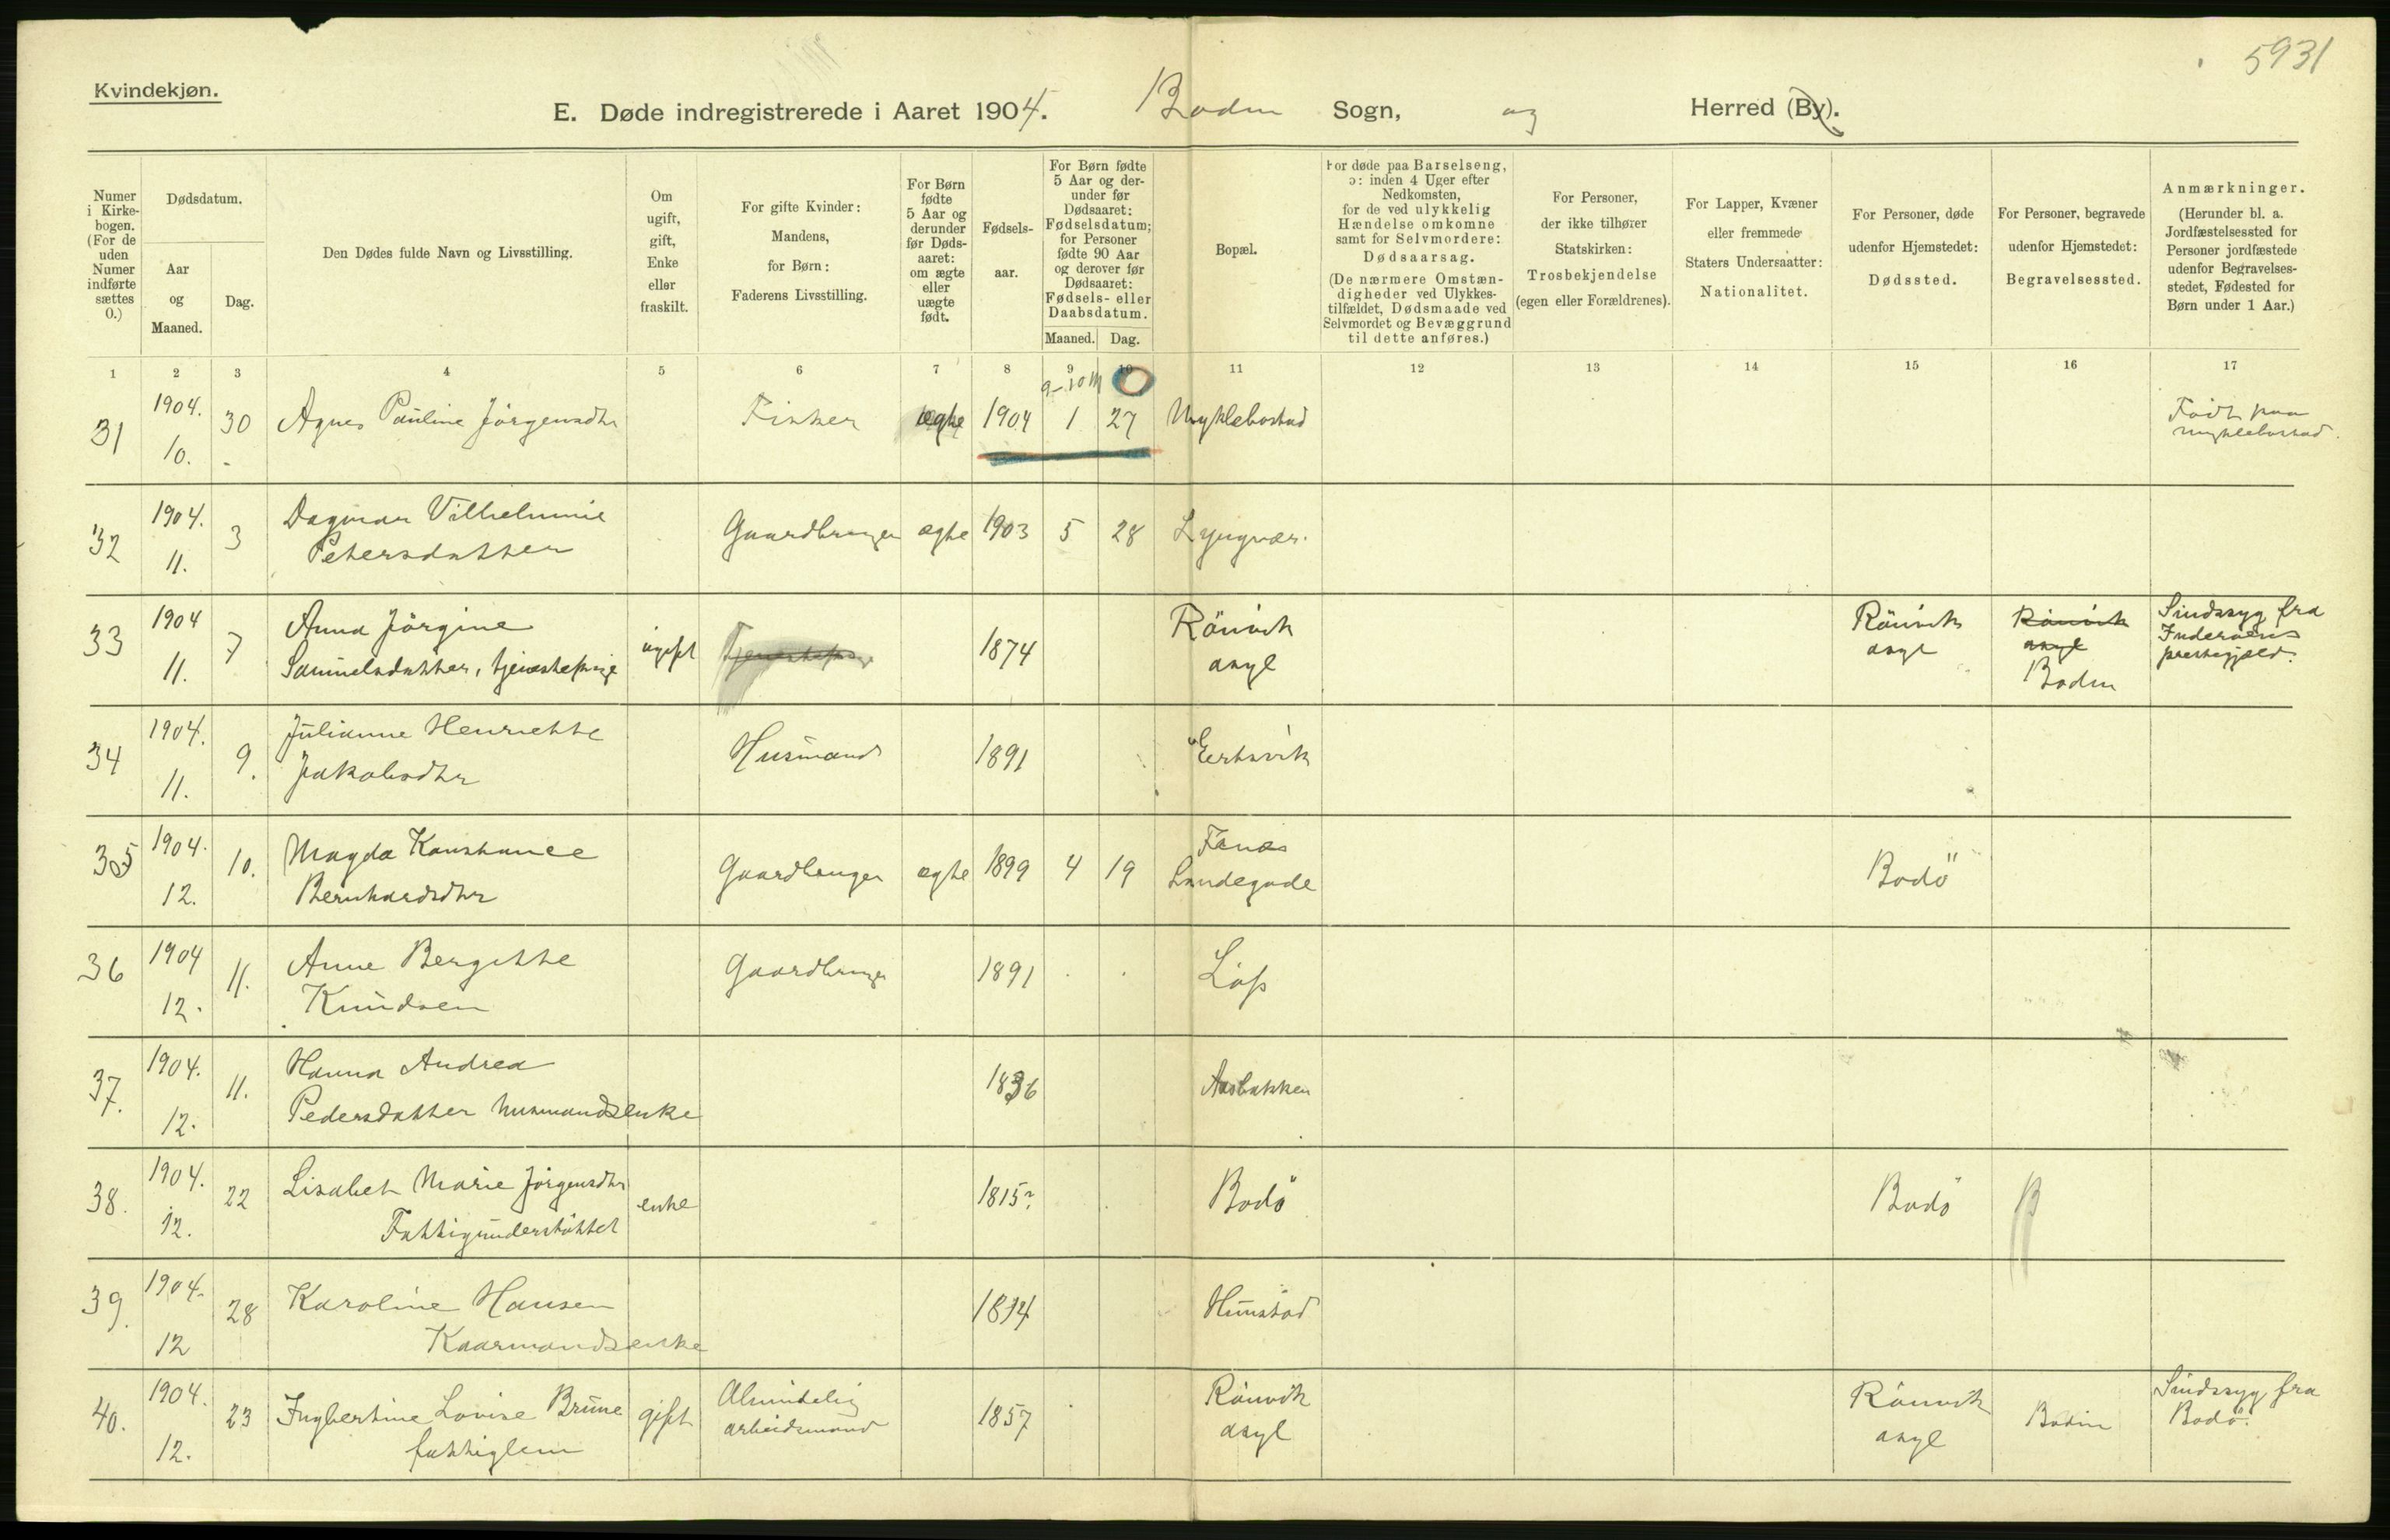 5931
Kvindekjøn.
E. Døde indregistrerede i Aaret 1904. Bodin Sogn, og Herred (By).
Numer i Kirke-bogen. (For de uden Numer indførte sættes 0.)
Dødsdatum.
Aar og Maaned.
Dag.
Den Dødes fulde Navn og Livsstilling.
Om ugift, gift, Enke eller fraskilt.
For gifte Kvinder: Mandens, for Børn: Faderens Livsstilling.
For Børn fødte 5 Aar og derunder før Døds-aaret: om ægte eller uægte født.
Fødsels-aar.
For Børn fødte 5 Aar og der-under før Dødsaaret: Fødselsdatum; for Personer fødte 90 Aar og derover før Dødsaaret: Fødsels- eller Daabsdatum.
Maaned. Dag.
Bopæl.
For døde paa Barselseng, ɔ: inden 4 Uger efter Nedkomsten, for de ved ulykkelig Hændelse omkomne samt for Selvmordere: Dødsaarsag.
(De nærmere Omstæn-digheder ved Ulykkes-tilfældet, Dødsmaade ved Selvmordet og Bevæggrund til dette anføres.)
For Personer, der ikke tilhører Statskirken: Trosbekjendelse (egen eller Forældrenes).
For Lapper, Kvæner eller fremmede Staters Undersaatter: Nationalitet.
For Personer, døde udenfor Hjemstedet: Dødssted.
For Personer, begravede udenfor Hjemstedet: Begravelsessted.
Anmærkninger. (Herunder bl. a. Jordfæstelsessted for Personer jordfæstede udenfor Begravelses-stedet, Fødested for Børn under 1 Aar.)
1 2 3 4 5 6 7 8 9 10 11 12 13 14 15 16 17
9-10 M 0
31 1904. 10. 30 Agnes Pauline Jörgensdtr Fisker ægte 1904 1 27 Myklebostad Födt paa Myklebostad.
32 1904. 11. 3 Dagmar Vilhelmine Petersdatter Gaardbruger ægte 1903 5 28 Lyngvær.
33 1904 11. 7 Anna Jörgine Samuelsdatter, tjenestepige ugift Tjenestepige 1874 Rönvik asyl Rönvik asyl Rönvik asyl Bodin Sindssyg fra Inderøens prestegjeld.
34 1904. 11. 9. Julianne Henriette Jakobsdtr Husmand 1891 Eertsvik
35 1904. 12. 10. Magda Konstance Bernhardsdtr Gaardbruger ægte 1899 4 19 Fenes Landegode Bodö
36 1904 12. 11. Anne Bergitte Knudsen Gaardbruger 1891 Löp
37. 1904. 12. 11. Hanna Andrea Pedersdatter husmandsenke 1836 Aasbakken
38. 1904. 12. 22 Lisabet Marie Jörgensdtr Fattigunderstöttet enke 1815? Bodö Bodö B
39. 1904. 12 28 Karoline Hansen Kaarmandsenke 1814 Hunstad
40. 1904. 12. 23 Ingbertine Lovise Brune fattiglem gift Almindelig arbeidsmand 1857 Rönvik asyl Rönvik asyl Bodin Sindssyg fra Bodö.